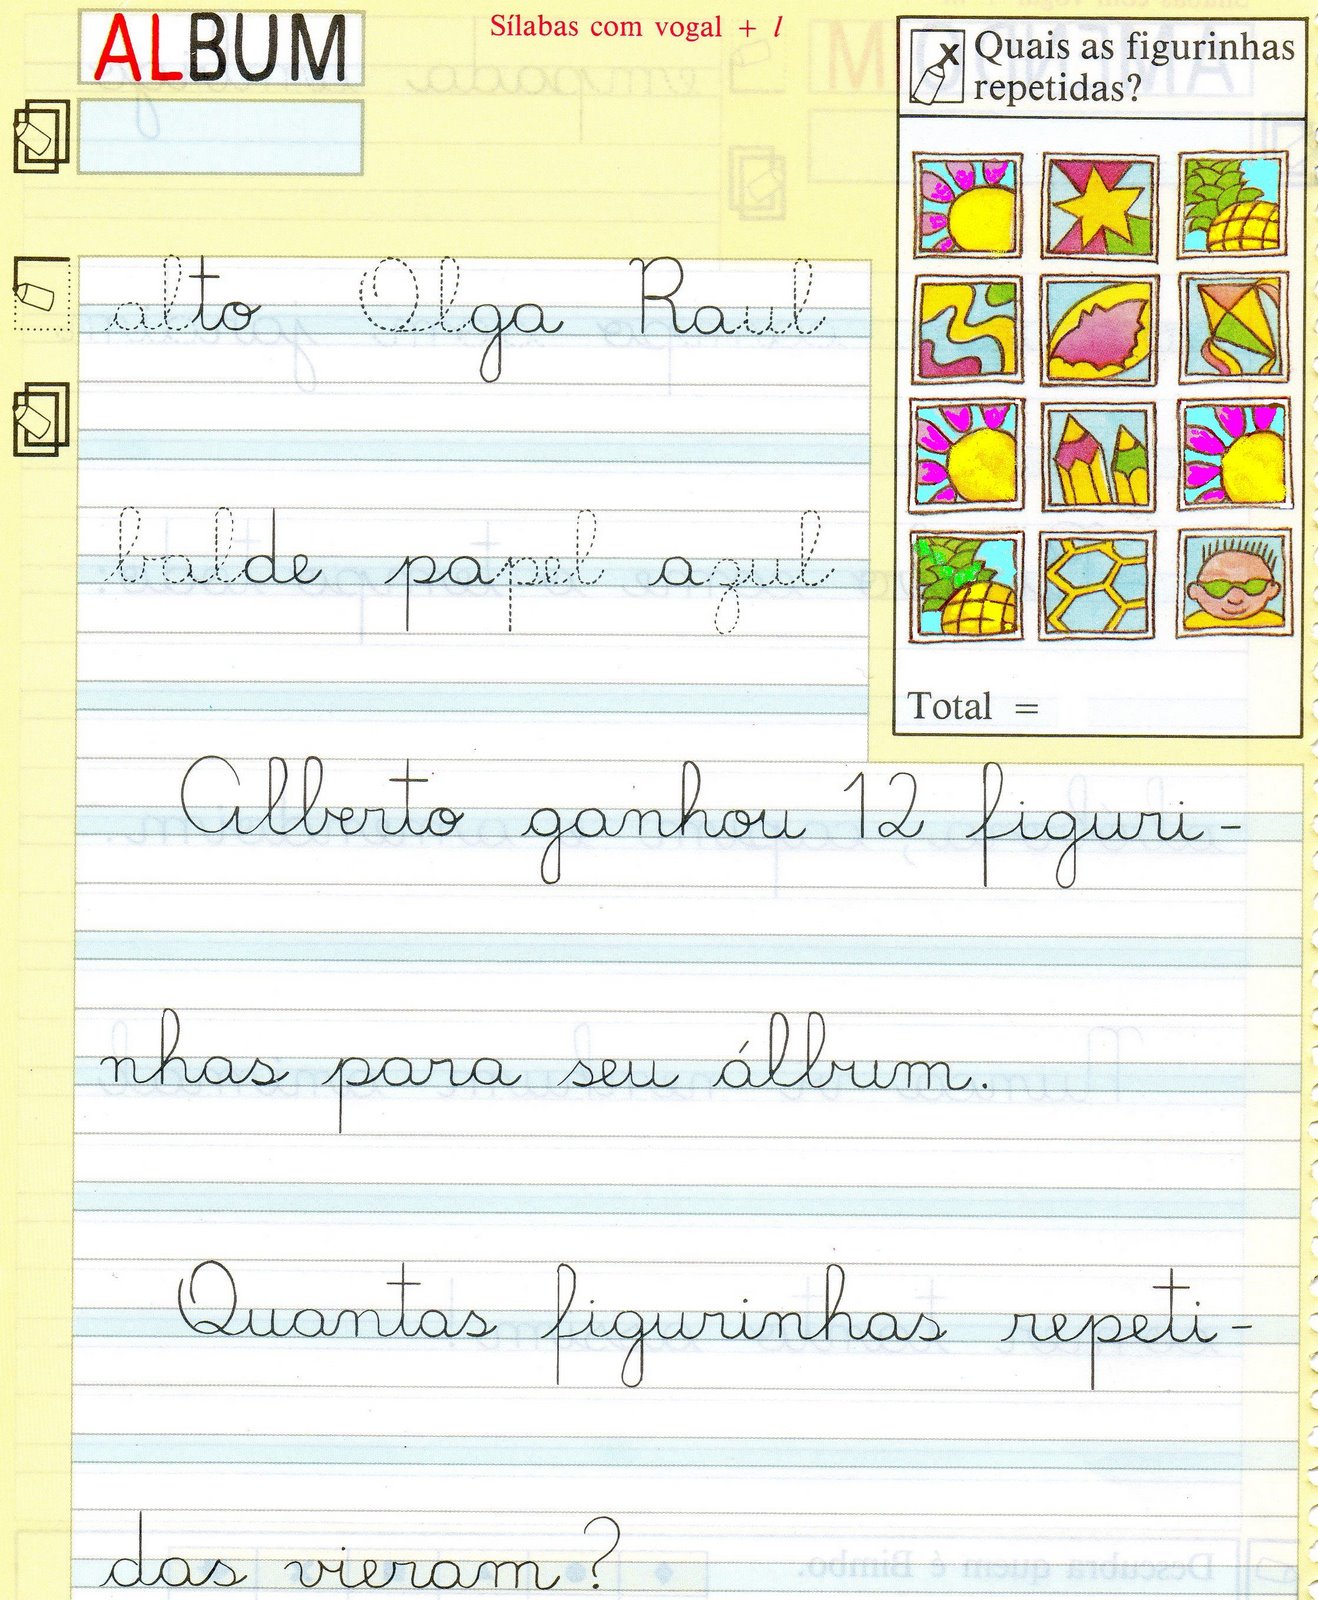 ALBUM
Sílabas com vogal + l
Quais as figurinhas
repetidas?
alto Olga Raul
balde papel azul
Total =
Alberto ganhou 12 figuri-
nhas para seu álbum.
Quantas figurinhas repeti-
das vieram?
Descubra quem é Bimbo.